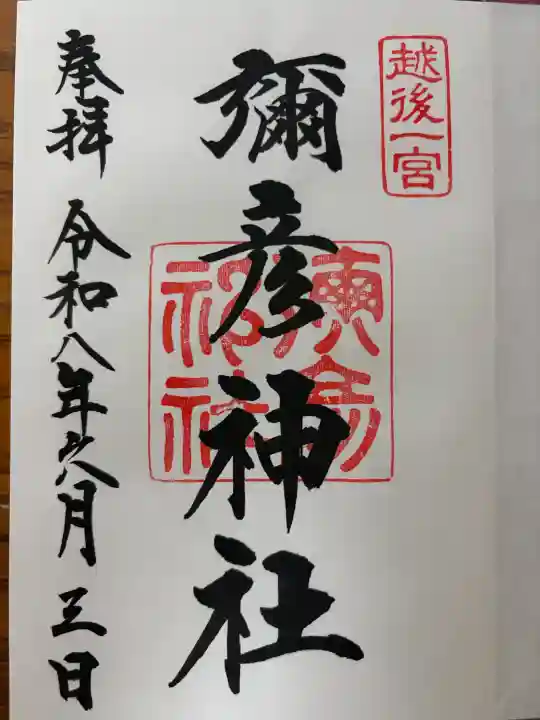 越後一宮
彌彦神社
奉拝 令和八年六月三日